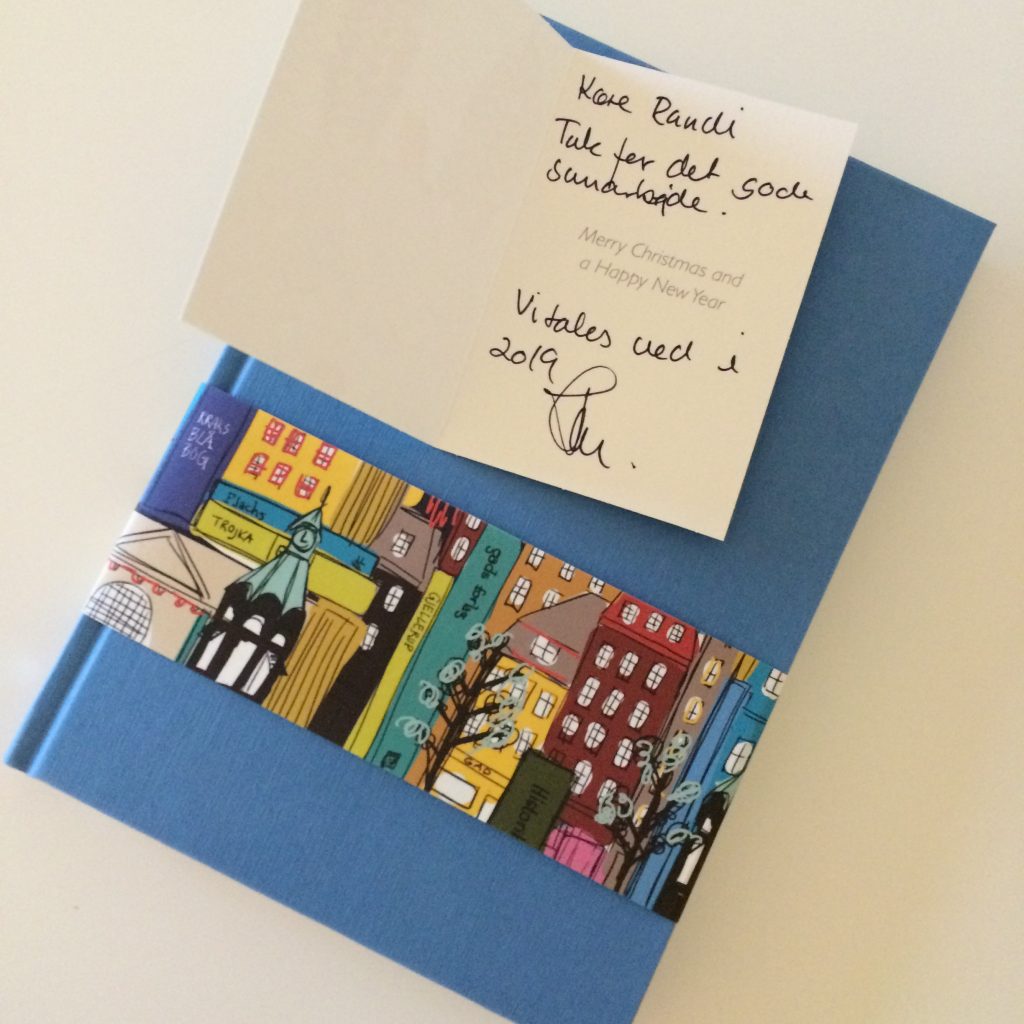 Kære Randi
Tak for det gode
samarbejde.
Merry Christmas and
a Happy New Year
Vi tales ved i
2019
KRAKS
BLÅ
BOG
Flachs
TROJKA
GJELLERUP
gads forlag
GAD
Histori